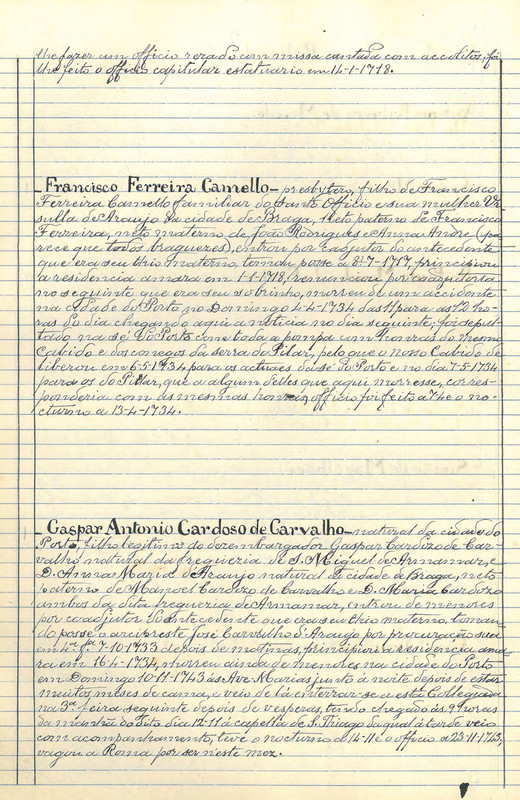 lhe fazer um officio rezado com missa cantada com accolitos, foi
lhe feito o officio capitular estatuario em 14-1-1718.
Francisco Ferreira Camello - presbytero, filho de Francisco
Ferreira Camello familiar do Santo Officio e sua mulher Ur
sulla de Araujo da cidade de Braga, neto paterno de Francisco
Ferreira, neto materno de João Rodrigues e Anna André (pa
rece que todos braguezes), entrou por coadjutor do antecedente
que era seu thio materno, tomou posse a 8-7-1717, principiou
a residencia amara em 1-1-1718, renunciou por coadjutoria
no seguinte que era seu sobrinho, morreu de um accidente
na cidade do Porto no Domingo 4-4-1734 das 11 para as 12 ho-
ras do dia chegando aqui a noticia no dia seguinte; foi sepul-
tado na sé do Porto com toda a pompa com honras do mesmo
Cabido e dos conegos da serra do Pilar, pelo que o nosso Cabido de
liberou em 6-5-1734 para os actuaes da sé do Porto e no dia 7-5-1734
para os do Pillar, que a algum delles que aqui morresse, corres-
ponderia com as mesmas honras, officio foi feito a 14 e o no-
cturno a 13-4-1734.
Gaspar Antonio Cardoso de Carvalho - natural da cidade do
Porto, filho legitimo do dezembargador Gaspar Cardozo de Car-
valho natural da freguezia de S. Miguel de Armamar, e
D. Anna Maria d'Araujo natural da cidade de Braga, neto
paterno de Manoel Cardozo de Carvalho e D. Maria Cardozo
ambos da dita freguezia de Armamar, entrou de menores
por coadjutor do antecedente que era seu thio materno, toman-
do posse o arcipreste José Carvalho d'Araujo por procuração sua
em 4ª fª 7-10-1733 depois de matinas, principiou a residencia ama
ra em 16-4-1734, morreu ainda de menores na cidade do Porto
em Domingo 10-11-1743 ás Ave Marias junto á noite depois de estar
muitos meses de cama, e veio de lá enterrar-se a esta Collegiada
na 3ª feira seguinte depois de vesperas, tendo chegado ás 9 horas
da manhã do dito dia 12-11 á capella de S. Thiago da qual á tarde veio
com acompanhamento, teve o nocturno a 14-11 e o officio a 23-11-1743,
vagou a Roma por ser neste mez.